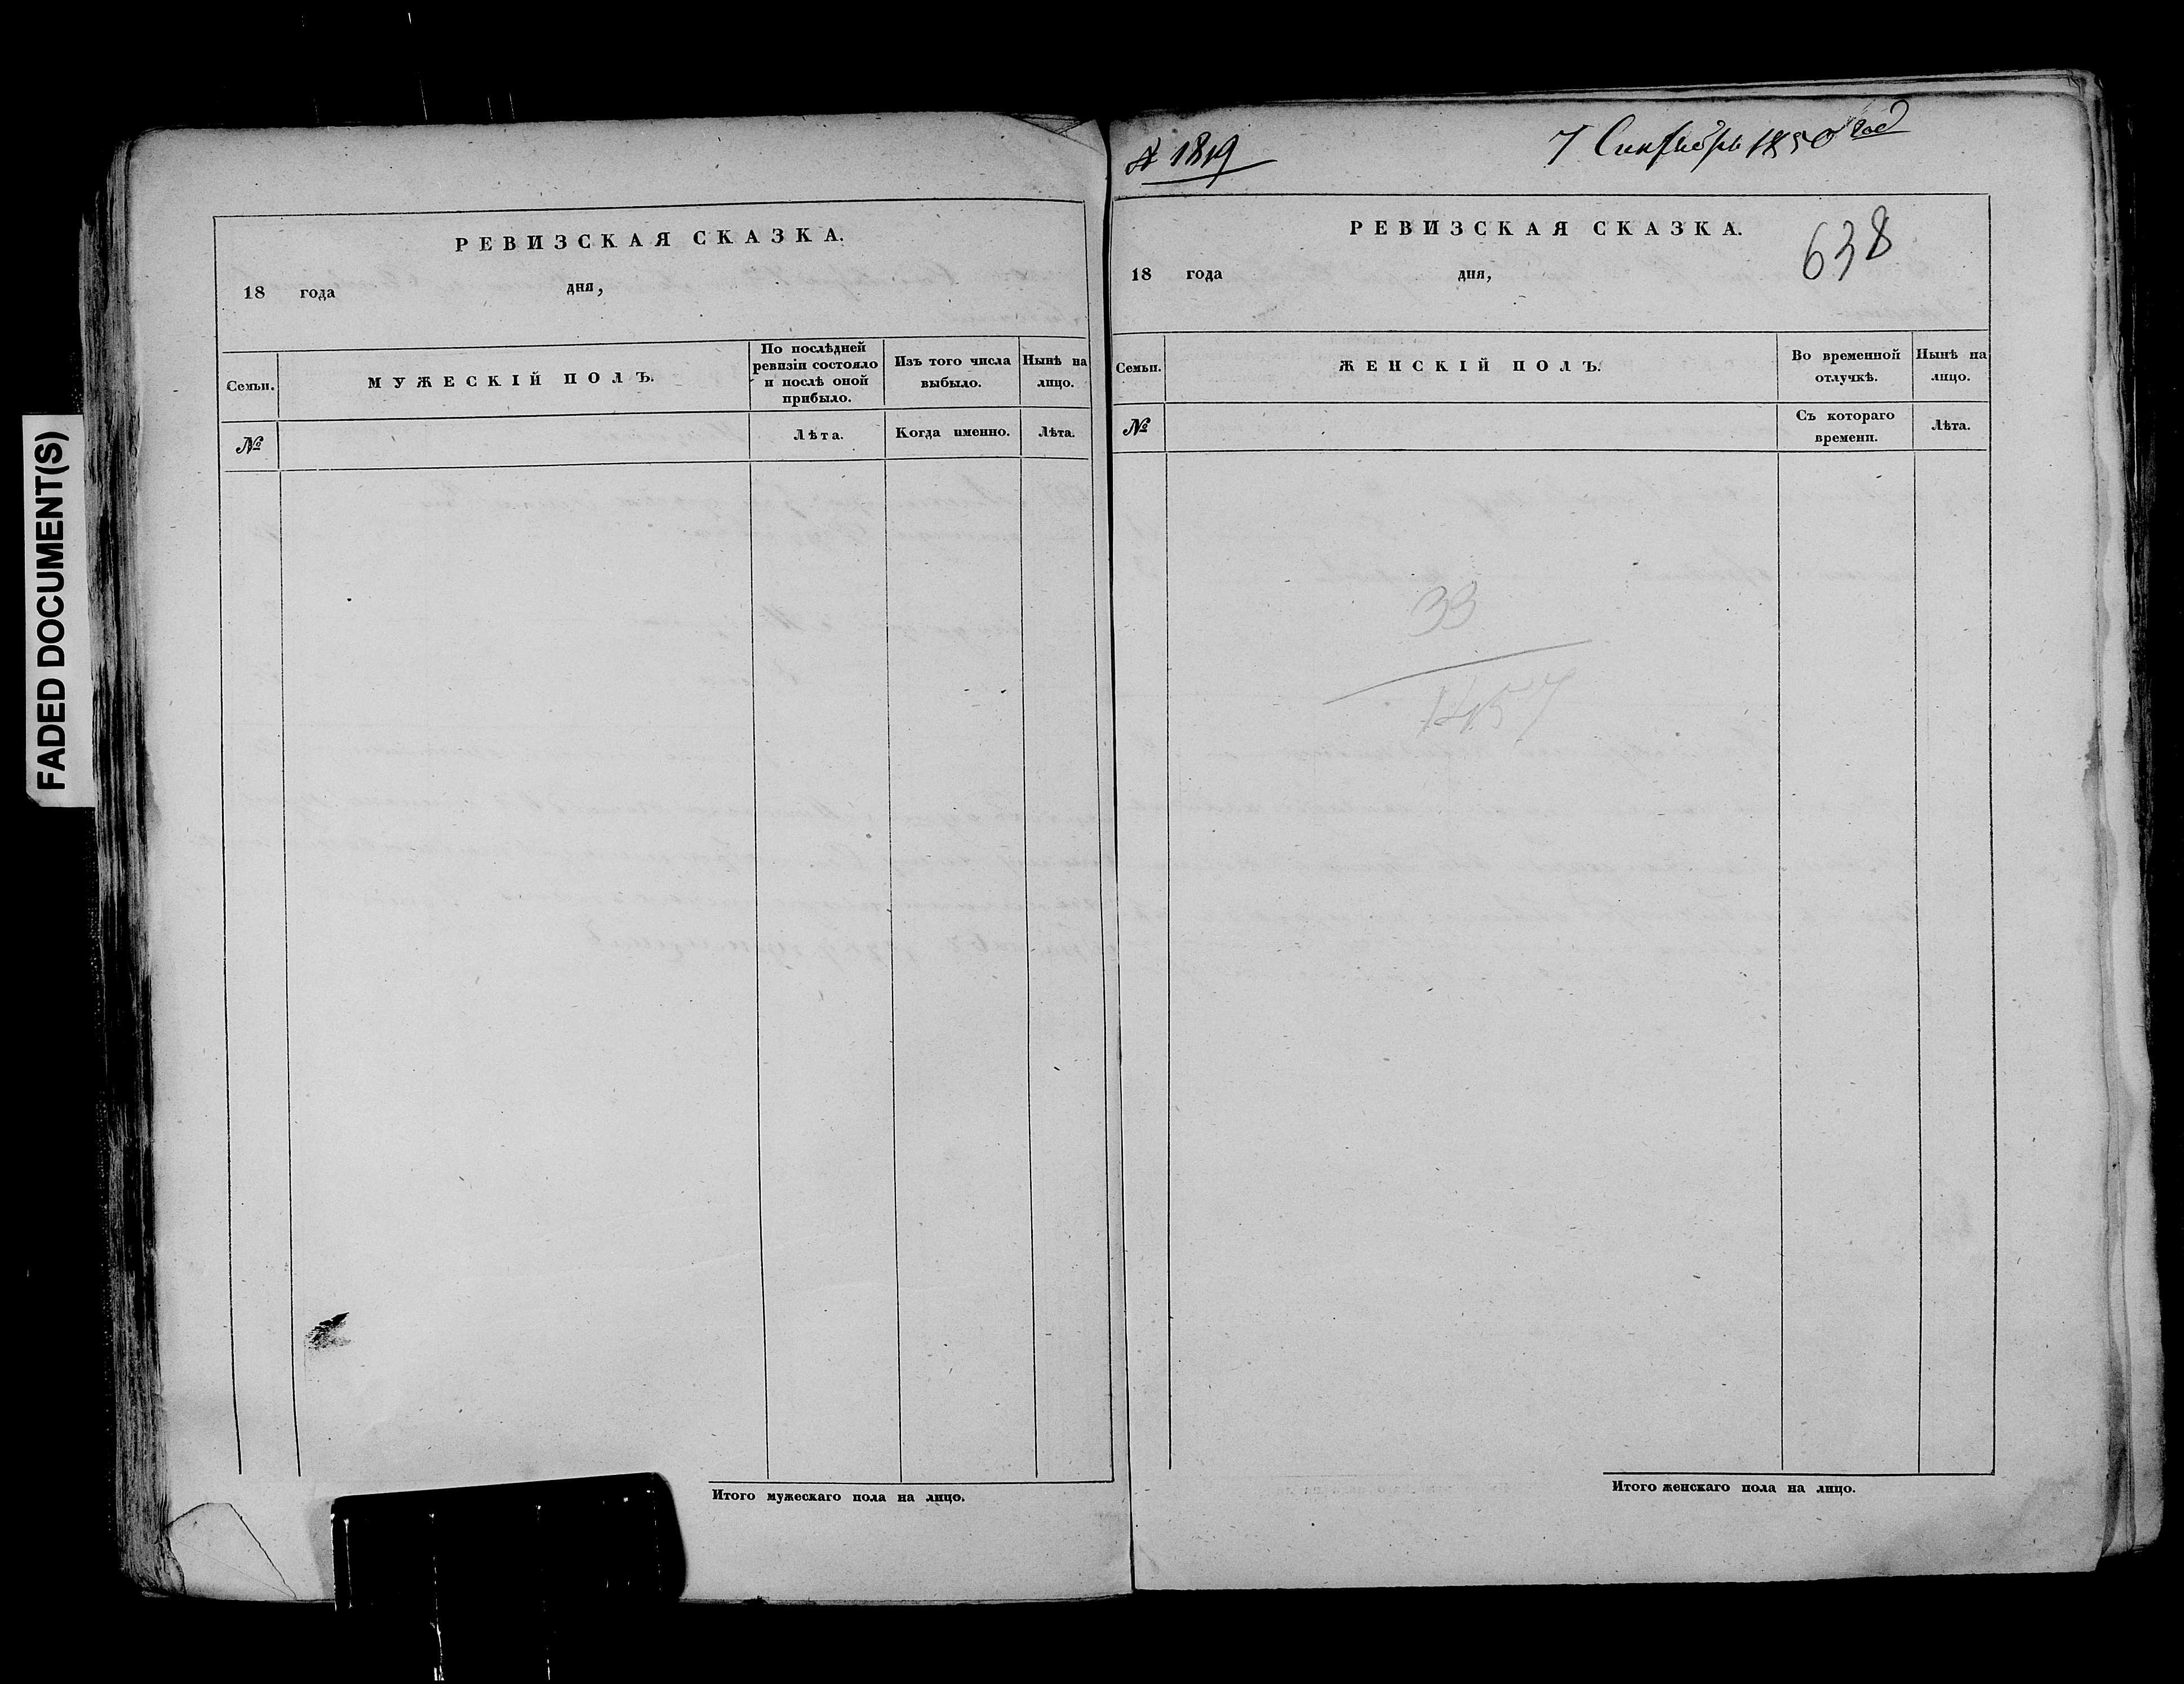 FADED DOCUMENT(S)
РЕВИЗСКАЯ СКАЗКА.
18 года дня,
Семьи.
МУЖЕСКІЙ ПОЛЪ.
По послѣдней
ревизіи состояло
и послѣ оной
прибыло.
Изъ того числа
выбыло.
Нынѣ на
лицо.
№
Лѣта.
Когда именно.
Лѣта.
Итого мужескаго пола на лицо.
№ 1819
7 Сентябрь 1850 год
РЕВИЗСКАЯ СКАЗКА.
638
18 года дня,
Семьи.
ЖЕНСКІЙ ПОЛЪ.
Во временной
отлучкѣ.
Нынѣ на
лицо.
№
Съ котораго
времени.
Лѣта.
33
1457
Итого женскаго пола на лицо.